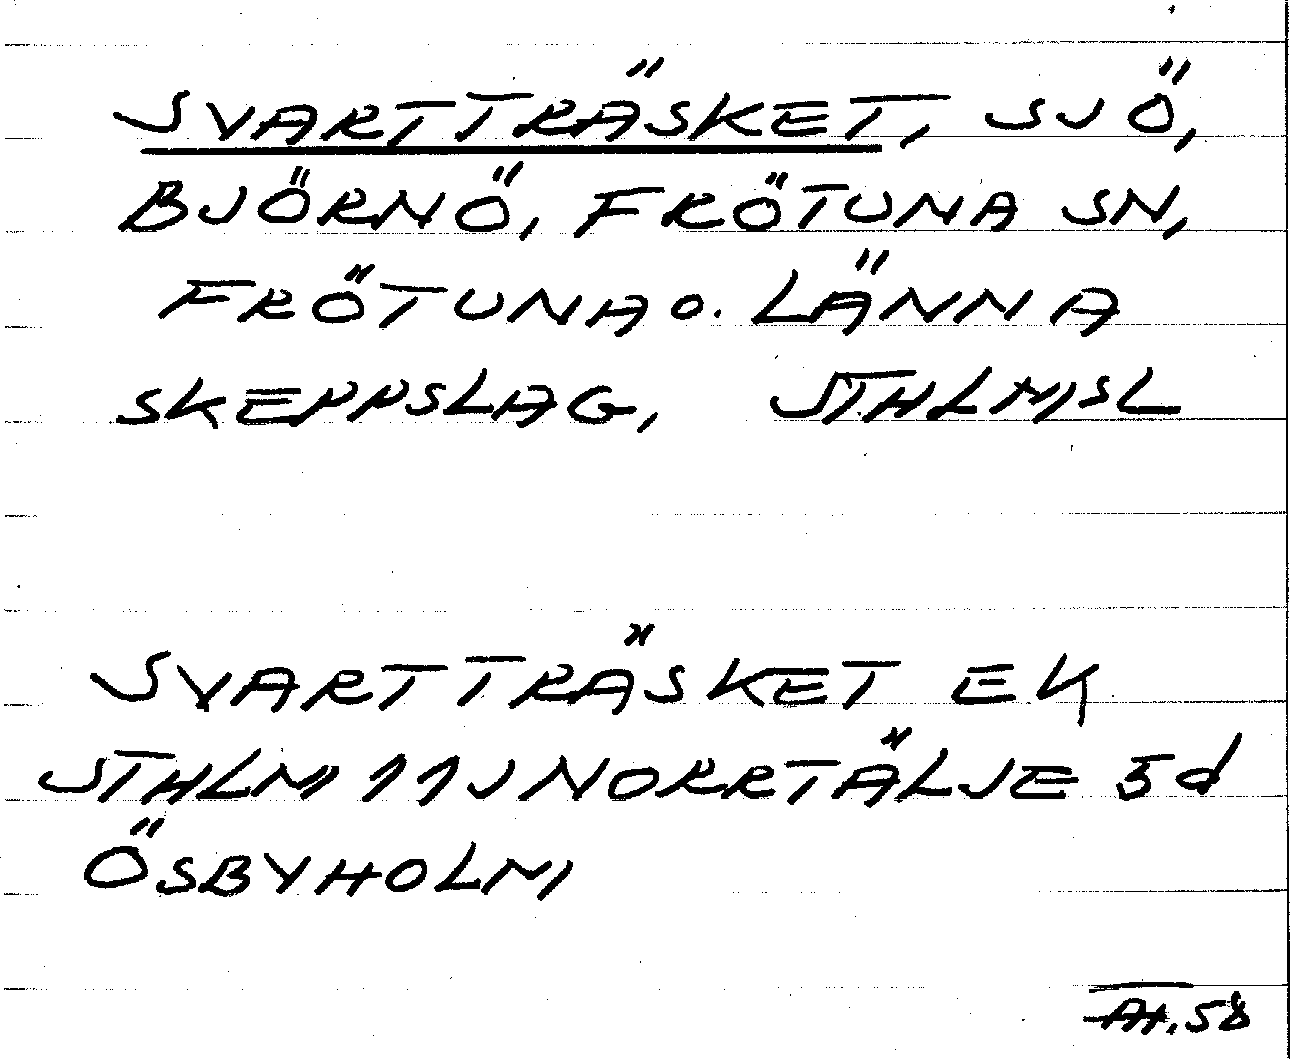 SVARTTRÄSKET, SJÖ,
BJÖRNÖ, FRÖTUNA SN,
FRÖTUNA o. LÄNNA
SKEPPSLAG, STHLMSL
SVARTTRÄSKET EK
STHLM 11J NORRTÄLJE 5d
ÖSBYHOLM
58